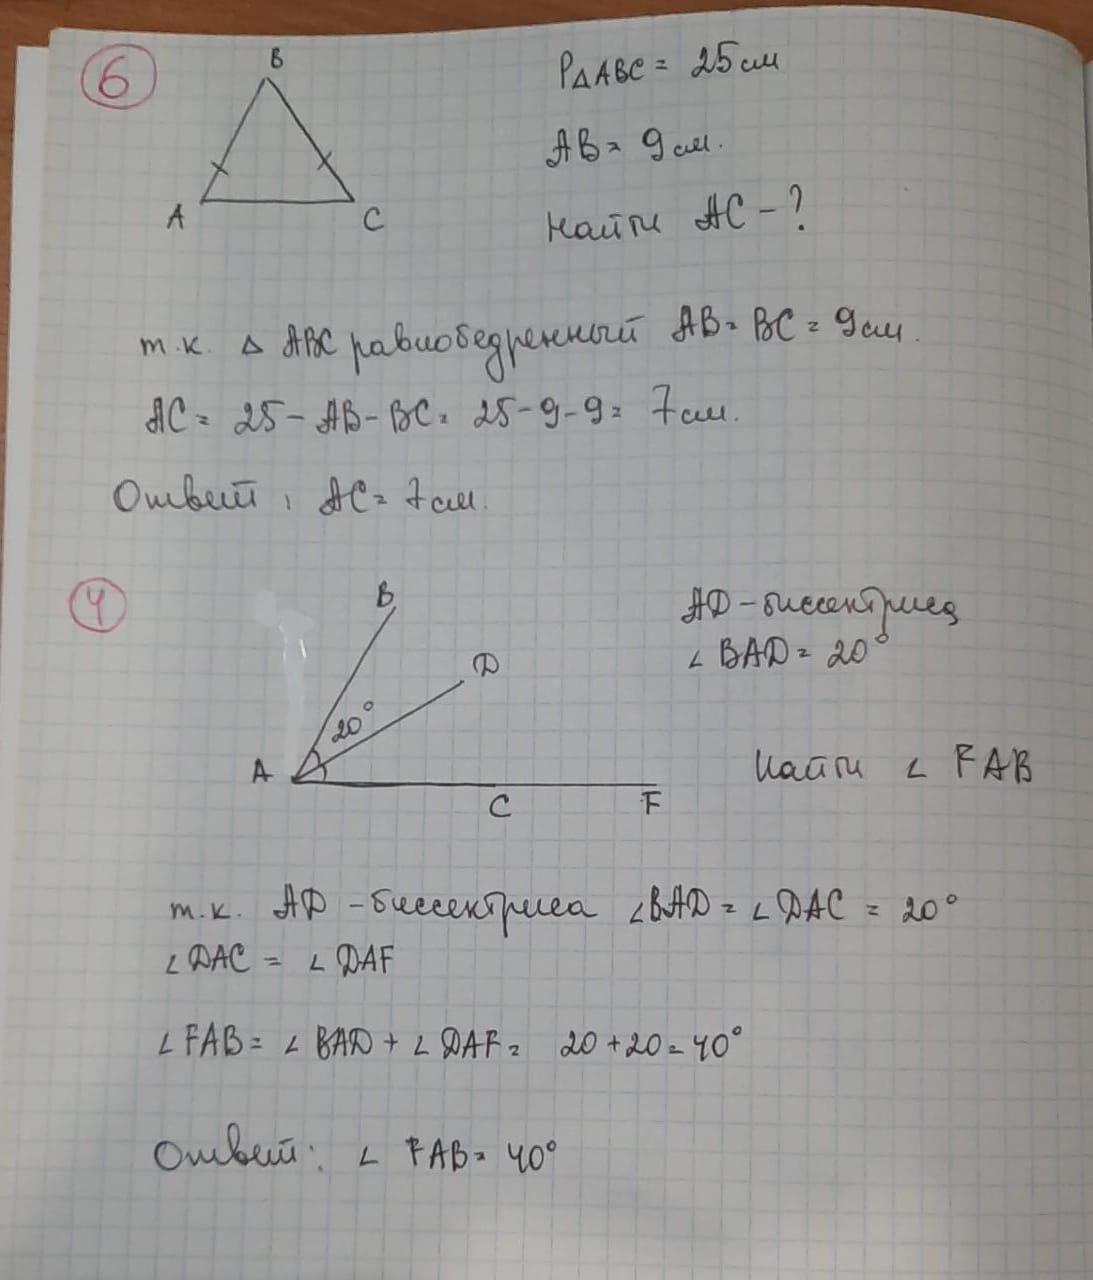 6
B
A
C
P△ABC = 25 см
AB = 9 см.
Найти AC - ?
т.к. △ ABC равнобедренный AB = BC = 9 см.
AC = 25 - AB - BC = 25 - 9 - 9 = 7 см.
Ответ: AC = 7 см.
4
B
D
20°
A
C
F
AD - биссектриса
∠ BAD = 20°
Найти ∠ FAB
т.к. AD - биссектриса ∠BAD = ∠DAC = 20°
∠DAC = ∠DAF
∠FAB = ∠ BAD + ∠ DAF = 20 + 20 = 40°
Ответ: ∠ FAB = 40°